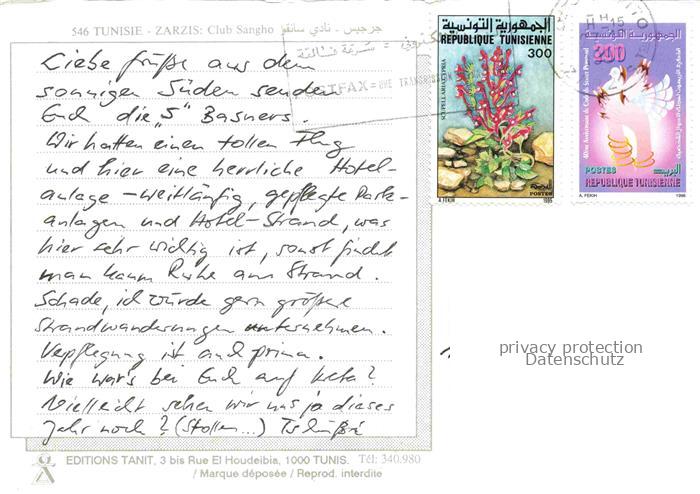 546 TUNISIE - ZARZIS: Club Sangho جرجيس - نادي سانقو
Liebe Grüße aus dem
sonnigen Süden senden
Euch die "5" Basners.
Wir hatten einen tollen Flug
und hier eine herrliche Hotel-
anlage - weitläufig, gepflegte Park-
anlagen und Hotel-Strand, was
hier sehr wichtig ist, sonst findet
man kaum Ruhe am Strand.
Schade, ich würde gern größere
Strandwanderungen unternehmen.
Verpflegung ist auch prima.
Wie war's bei Euch auf Kreta?
Vielleicht sehen wir uns ja dieses
Jahr noch? (Stollen...) Tschüßi
EDITIONS TANIT, 3 bis Rue El Houdeibia, 1000 TUNIS. Tél: 340.980
/ Marque déposée / Reprod. interdite
الجمهورية التونسية
REPUBLIQUE TUNISIENNE
300
SCUPELLARIA CYPRIA
البريد POSTES
A. FEKIH 1995
الجمهورية التونسية
200
40ème Anniversaire du Code du Statut Personnel
POSTES البريد
REPUBLIQUE TUNISIENNE
A. FEKIH 1996
H 15
privacy protection
Datenschutz